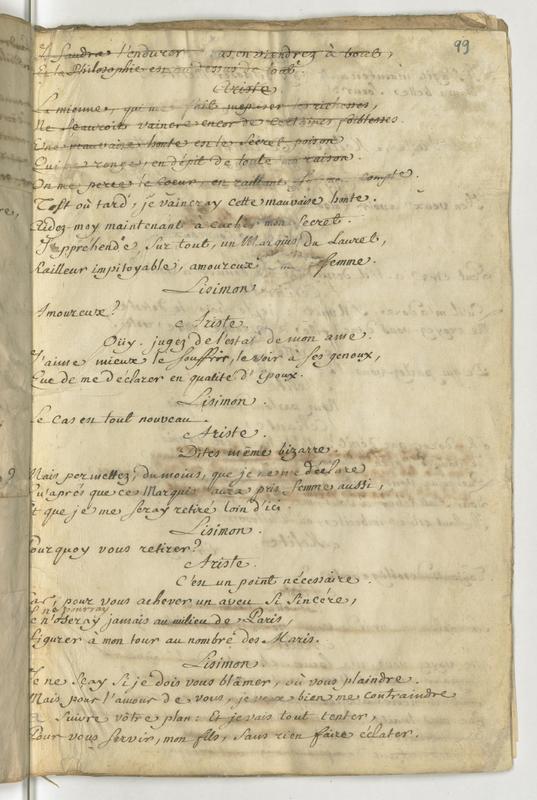 99
Il faudra l'endurer as en viendrez à bout,
Et la Philosophie est au dessus de tout.
Ariste
La mienne, qui me fait mepriser les richesses,
Ne sçauroit vaincre encor de certaines foiblesses.
Une mauvaise honte est le secret poison
Qui me ronge, en dépit de toute ma raison.
On me perce le coeur, en raillant sur mon compte.
Tost ou tard, je vaincray cette mauvaise honte.
Aidez moy maintenant a cacher mon Secret.
J'apprehende sur tout, un Marquis du Lauret,
Railleur impitoyable, amoureux femme.
Lisimon
Amoureux?
Ariste.
Oüy. jugez de l'estat de mon ame.
J'aime mieux le souffrir, le voir à ses genoux,
Que de me déclarer en qualité d'Epoux.
Lisimon.
Le cas en tout nouveau.
Ariste.
Dites même bizarre.
Mais permettez, du moins, que je ne me déclare
Qu'aprés que ce Marquis aura pris femme aussi,
Et que je me seray retiré loin d'ici.
Lisimon.
Pourquoy vous retirer?
Ariste.
C'est un point nécessaire.
Car, pour vous achever un aveu si sincére,
ne pourray
Je n'oseray jamais au milieu de Paris,
Figurer à mon tour au nombre des Maris.
Lisimon.
Je ne sçay si je dois vous blâmer, où vous plaindre.
Mais pour l'amour de vous, je veux bien me contraindre
suivre vôtre plan: Et je vais tout tenter,
Pour vous servir, mon fils, sans rien faire éclater.